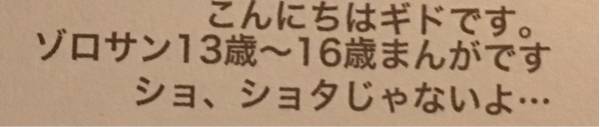 こんにちはギドです。
ゾロサン13歳〜16歳まんがです
ショ、ショタじゃないよ…